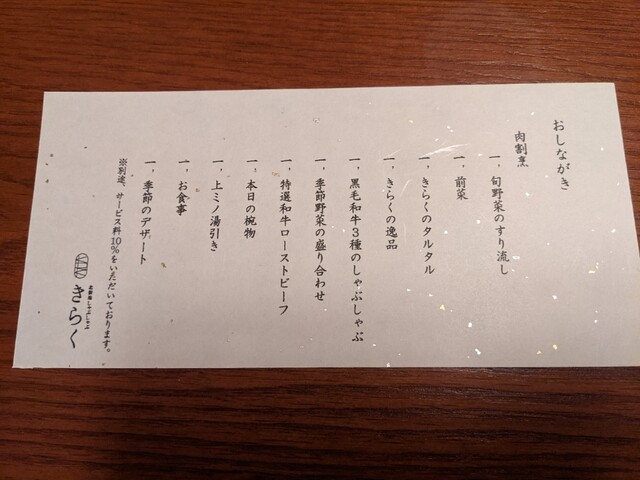 おしながき
肉割烹
一、旬野菜のすり流し
一、前菜
一、きらくのタルタル
一、きらくの逸品
一、黒毛和牛3種のしゃぶしゃぶ
一、季節野菜の盛り合わせ
一、特選和牛ローストビーフ
一、本日の椀物
一、上ミノ湯引き
一、お食事
一、季節のデザート
※別途、サービス料10%をいただいております。
きらく